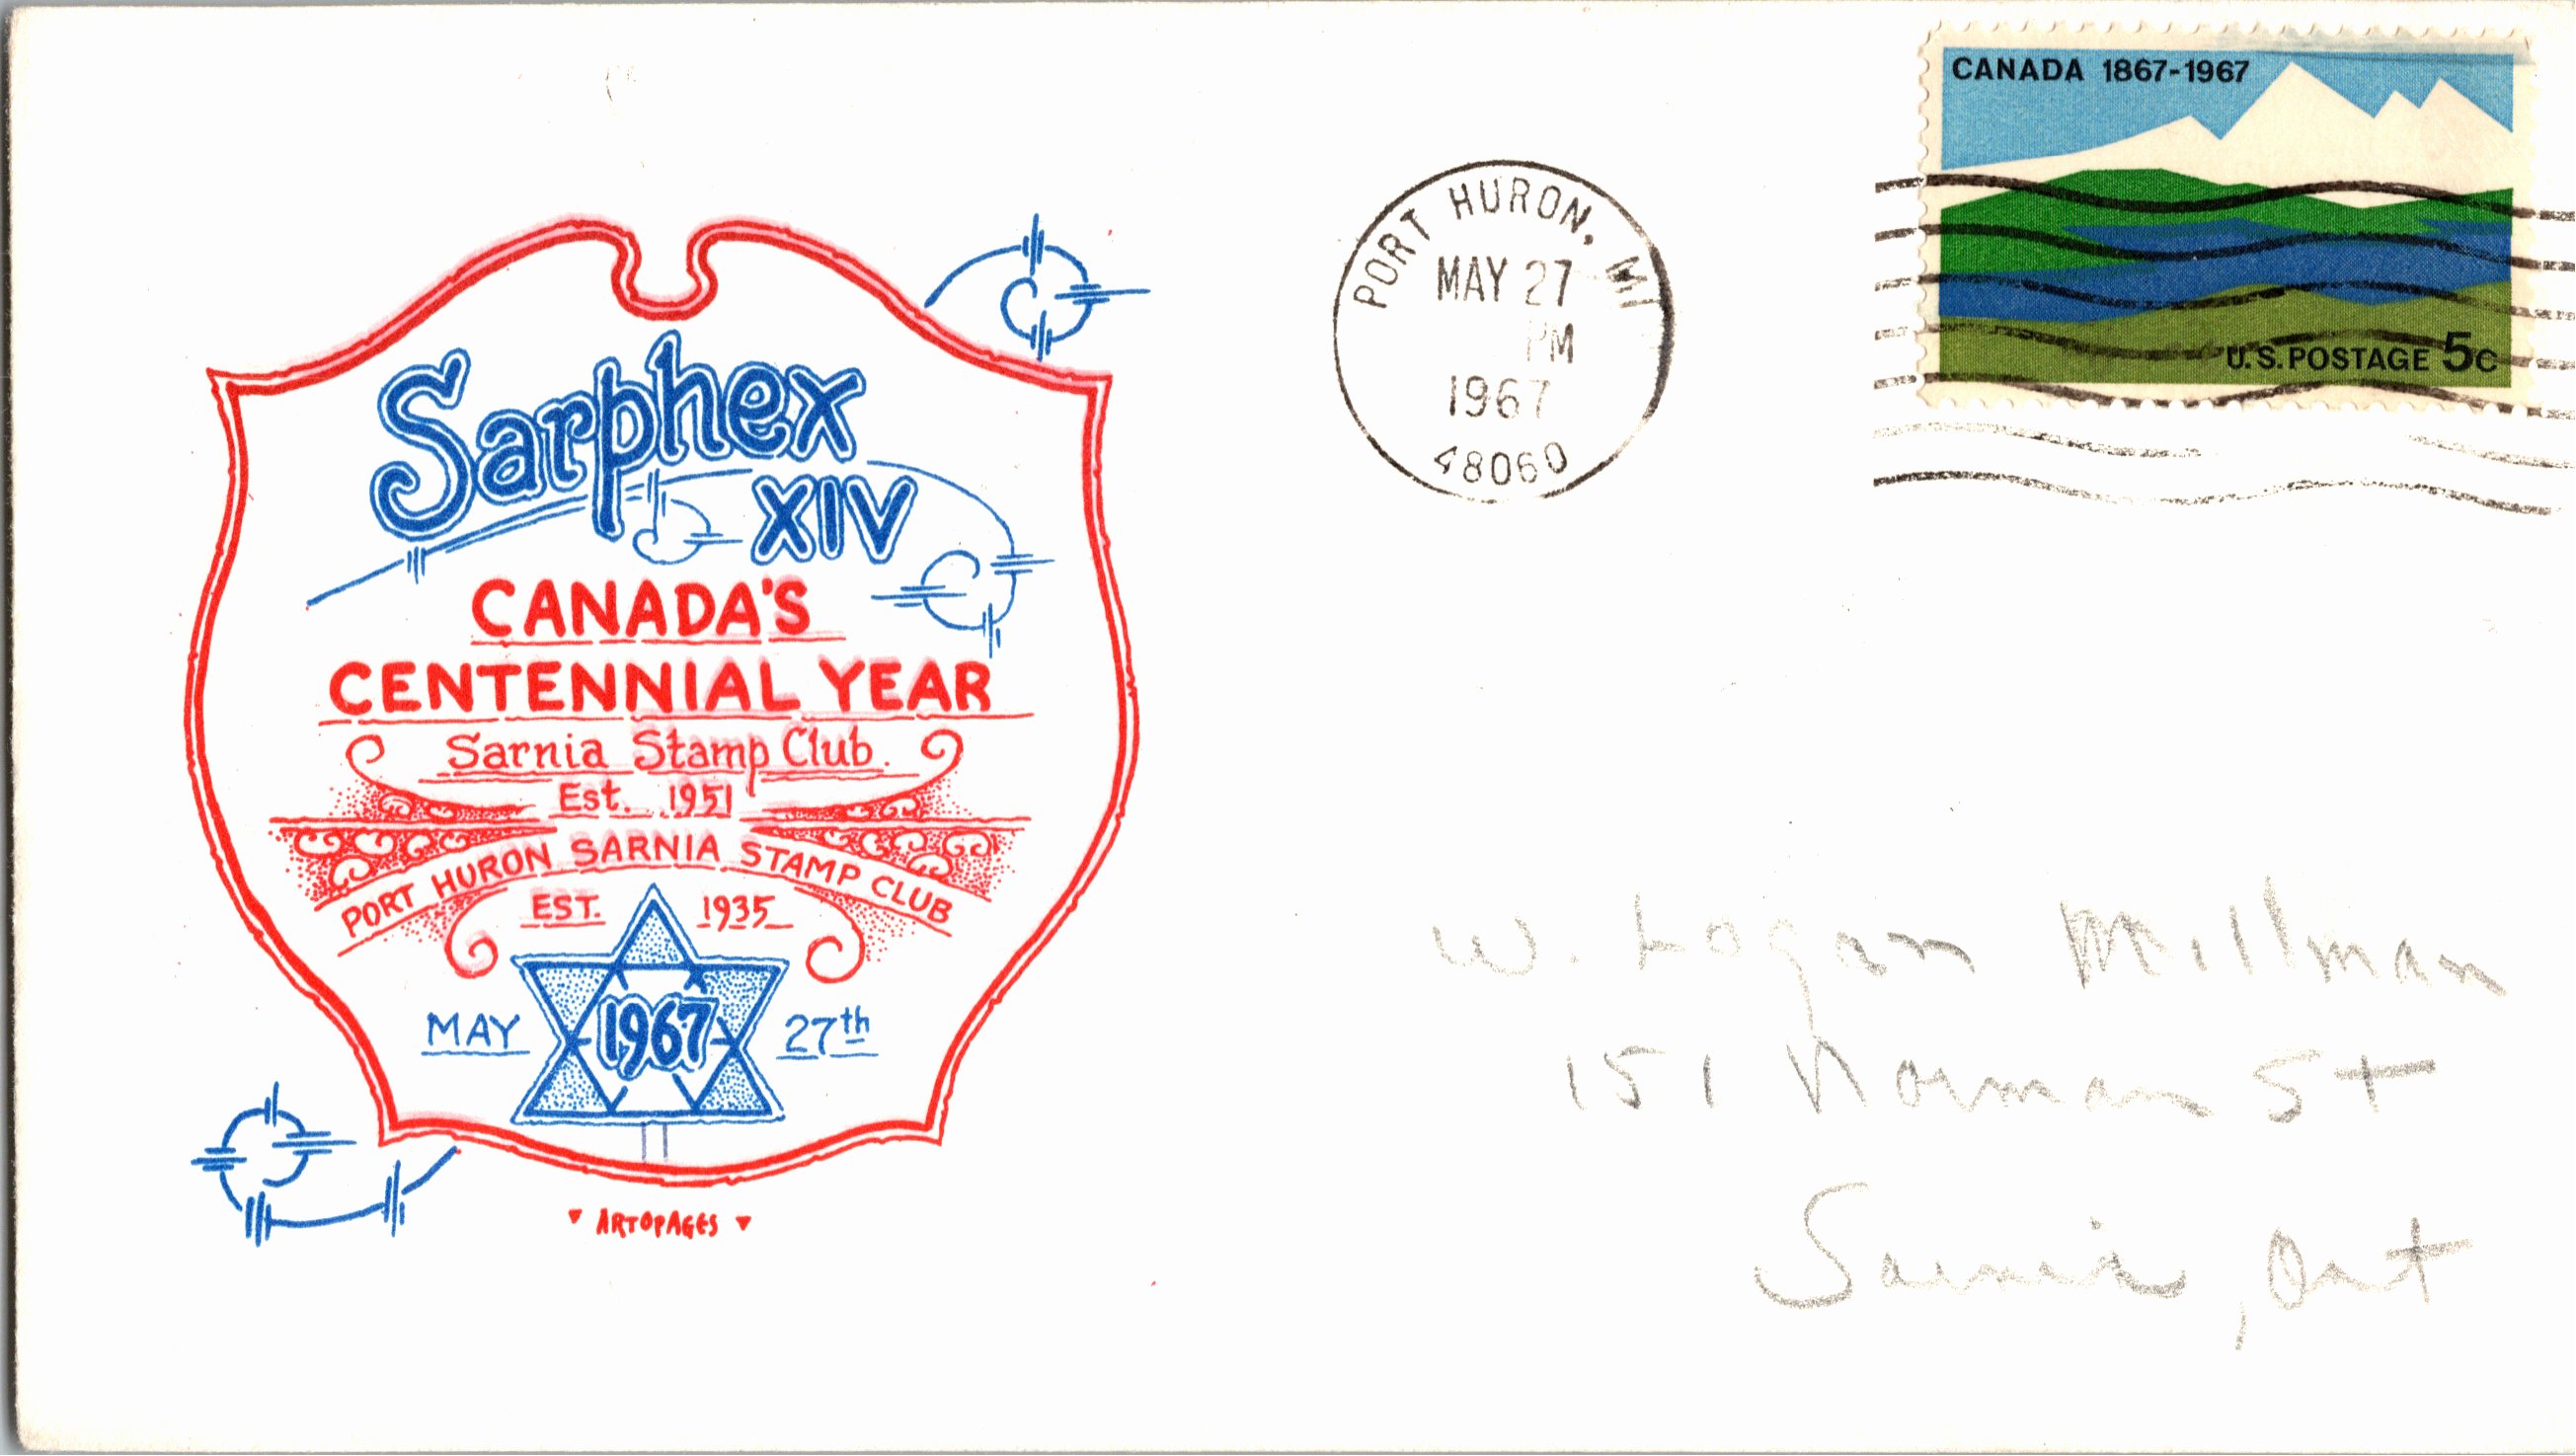 CANADA 1867-1967
U.S. POSTAGE 5c
PORT HURON, MI
MAY 27
PM
1967
48060
Sarphex
XIV
CANADA'S
CENTENNIAL YEAR
Sarnia Stamp Club
Est. 1951
PORT HURON SARNIA STAMP CLUB
EST. 1935
MAY 1967 27th
ARTOPAGES
W. Logan Millman
151 Norman St
Sarnia, Ont